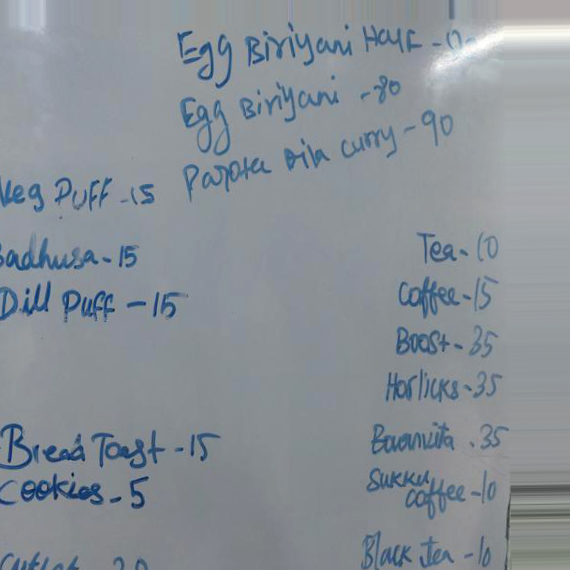 Egg Biriyani Half -
Egg Biriyani - 80
Parota with curry - 90
Veg Puff - 15
Badhusa - 15
Dill Puff - 15
Bread Toast - 15
Cookies - 5
Cutlet - 20
Tea - 10
Coffee - 15
Boost - 35
Horlicks - 35
Bournvita - 35
Sukku
coffee - 10
Black tea - 10